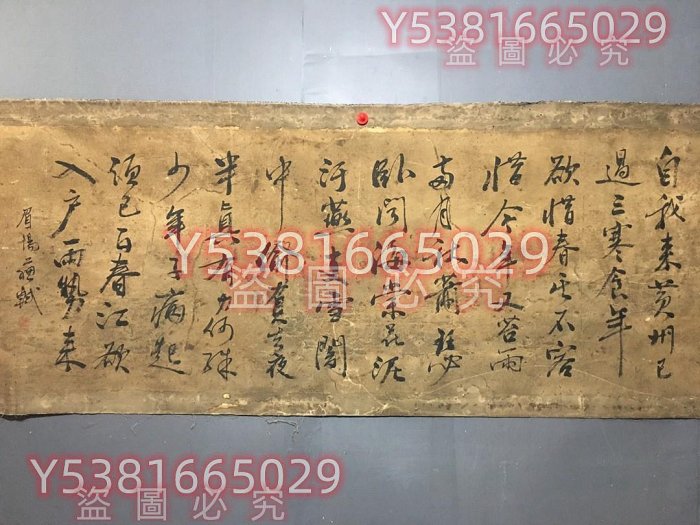 Y5381665029
盜圖必究
自我来黄州已
過三寒食年
欲惜春去不容
惜今年又苦雨
兩月秋蕭瑟
卧聞海棠花泥
汙燕支雪闇
中偷負去夜
半真有力何殊
少年子病起
須已白春江欲
入户雨勢来
眉陽蘇軾
Y5381665029
盜圖必究
Y5381665029
盜圖必究